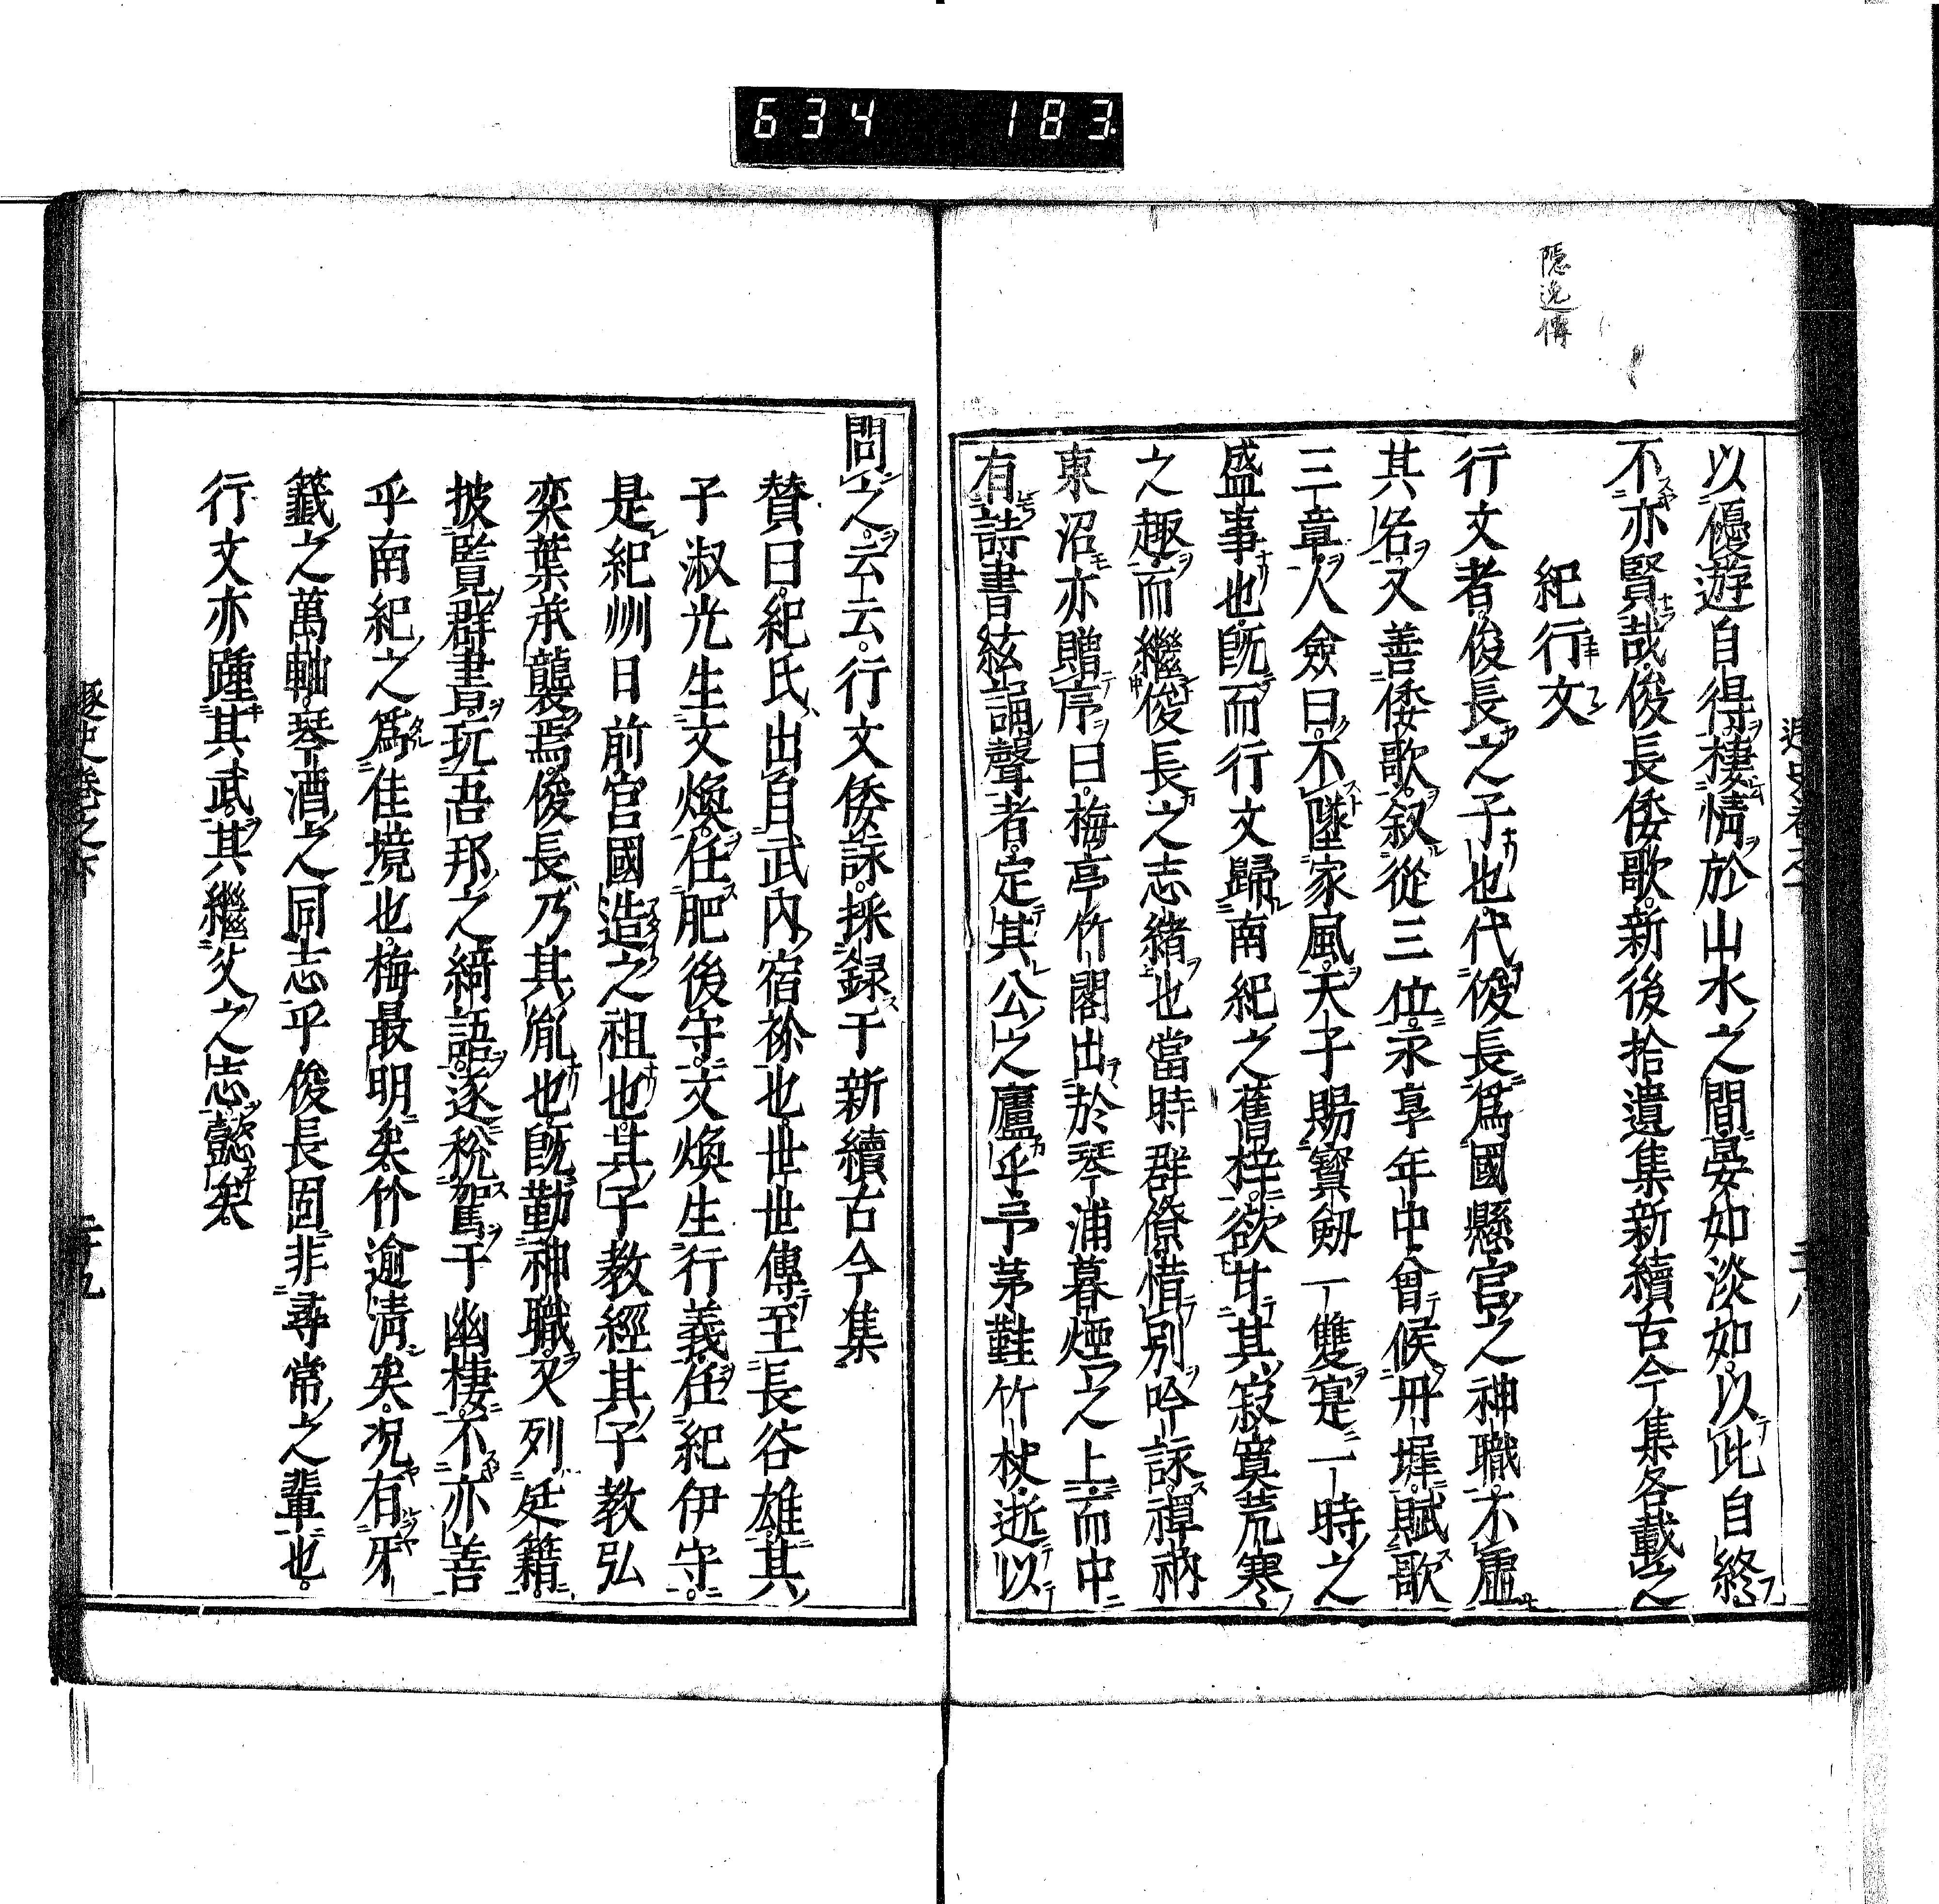 634 183
隱逸傳
以優遊自得棲情於山水之間晏如淡如以此自終
不亦賢哉俊長倭歌新後拾遺集新續古今集各載之
紀行文
行文者俊長之子也代俊長爲國懸官之神職不虛
其名又善倭歌叙從三位永享年中會候丹墀賦歌
三章人僉曰不墜家風天子賜寶劔一雙寔一時之
盛事也既而行文歸南紀之舊梓欲甘其寂寞荒寒
之趣而繼俊長之志緒也當時群僚惜別吟詠禪衲
東沼亦贈序曰梅亭竹閣出於琴浦暮煙之上而中
有詩書絃誦聲者定其公之廬乎予茅鞋竹杖逝以
問之云云行文倭詠採録于新續古今集
賛曰紀氏出自武内宿祢也世世傳至長谷雄其
子淑光生文煥任肥後守文煥生行義任紀伊守
是紀州日前官國造之祖也其子教經其子教弘
奕葉承襲焉俊長乃其胤也既勤神職又列廷籍
披覧群書玩吾邦之綺語逐稅駕于幽棲不亦善
乎南紀之爲佳境也梅最明矣竹逾淸矣况有牙
籤之萬軸琴酒之同志乎俊長固非尋常之輩也
行文亦踵其武其繼父之志懿矣